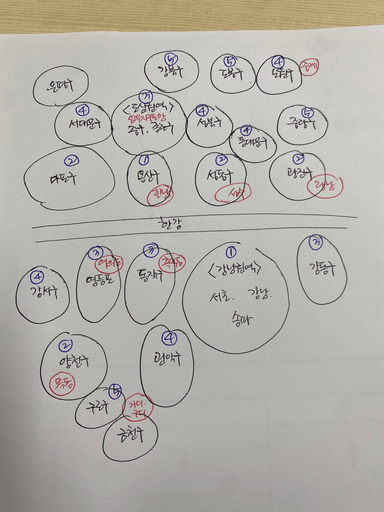 은평구
⑤
강북구
⑤
도봉구
④
노원구
중계
④
서대문구
③
<도심권역>
종로구, 중구
④
성북구
④
동대문구
⑤
중랑구
②
마포구
①
용산구
한남
②
성동구
성수
②
광진구
광남
한강
④
강서구
③
영등포
여의도
동작구
흑석동
①
<강남권역>
서초. 강남.
송파
③
강동구
②
양천구
목동
④
관악구
⑤
구로구
가디.
구디
금천구